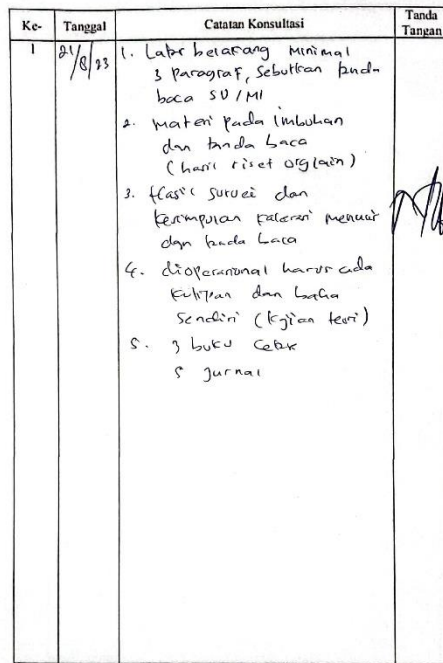 Ke- Tanggal Catatan Konsultasi Tanda Tangan
1 21/8/23 1. Latar belakang minimal
3 Paragraf, Sebutkan tanda
baca SD/MI
2. materi pada imbuhan
dan tanda baca
(hasil riset org lain)
3. Hasil survei dan
Kesimpulan menulis
dgn tanda baca
4. dioperasional harus ada
kutipan dan
Sendiri (kajian teori)
5. 3 buku cetak
5 jurnal